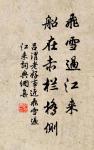 飛雪過江來
船在赤栏橋側
呂渭老好事近飛雪過
江來詞典網集